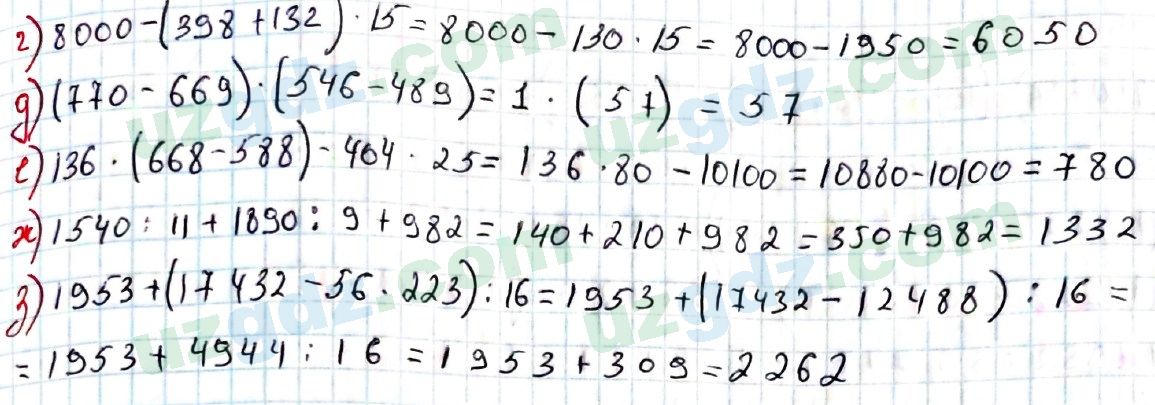 г) 8000-(398+132)·15=8000-130·15=8000-1950=6050
д) (770-669)·(546-489)=1·(57)=57
е) 136·(668-588)-404·25=136·80-10100=10880-10100=780
ж) 1540:11+1890:9+982=140+210+982=350+982=1332
з) 1953+(17432-56·223):16=1953+(17432-12488):16=
=1953+4944:16=1953+309=2262
uzgdz.com
uzgdz.com
uzgdz.com
uzgdz.com